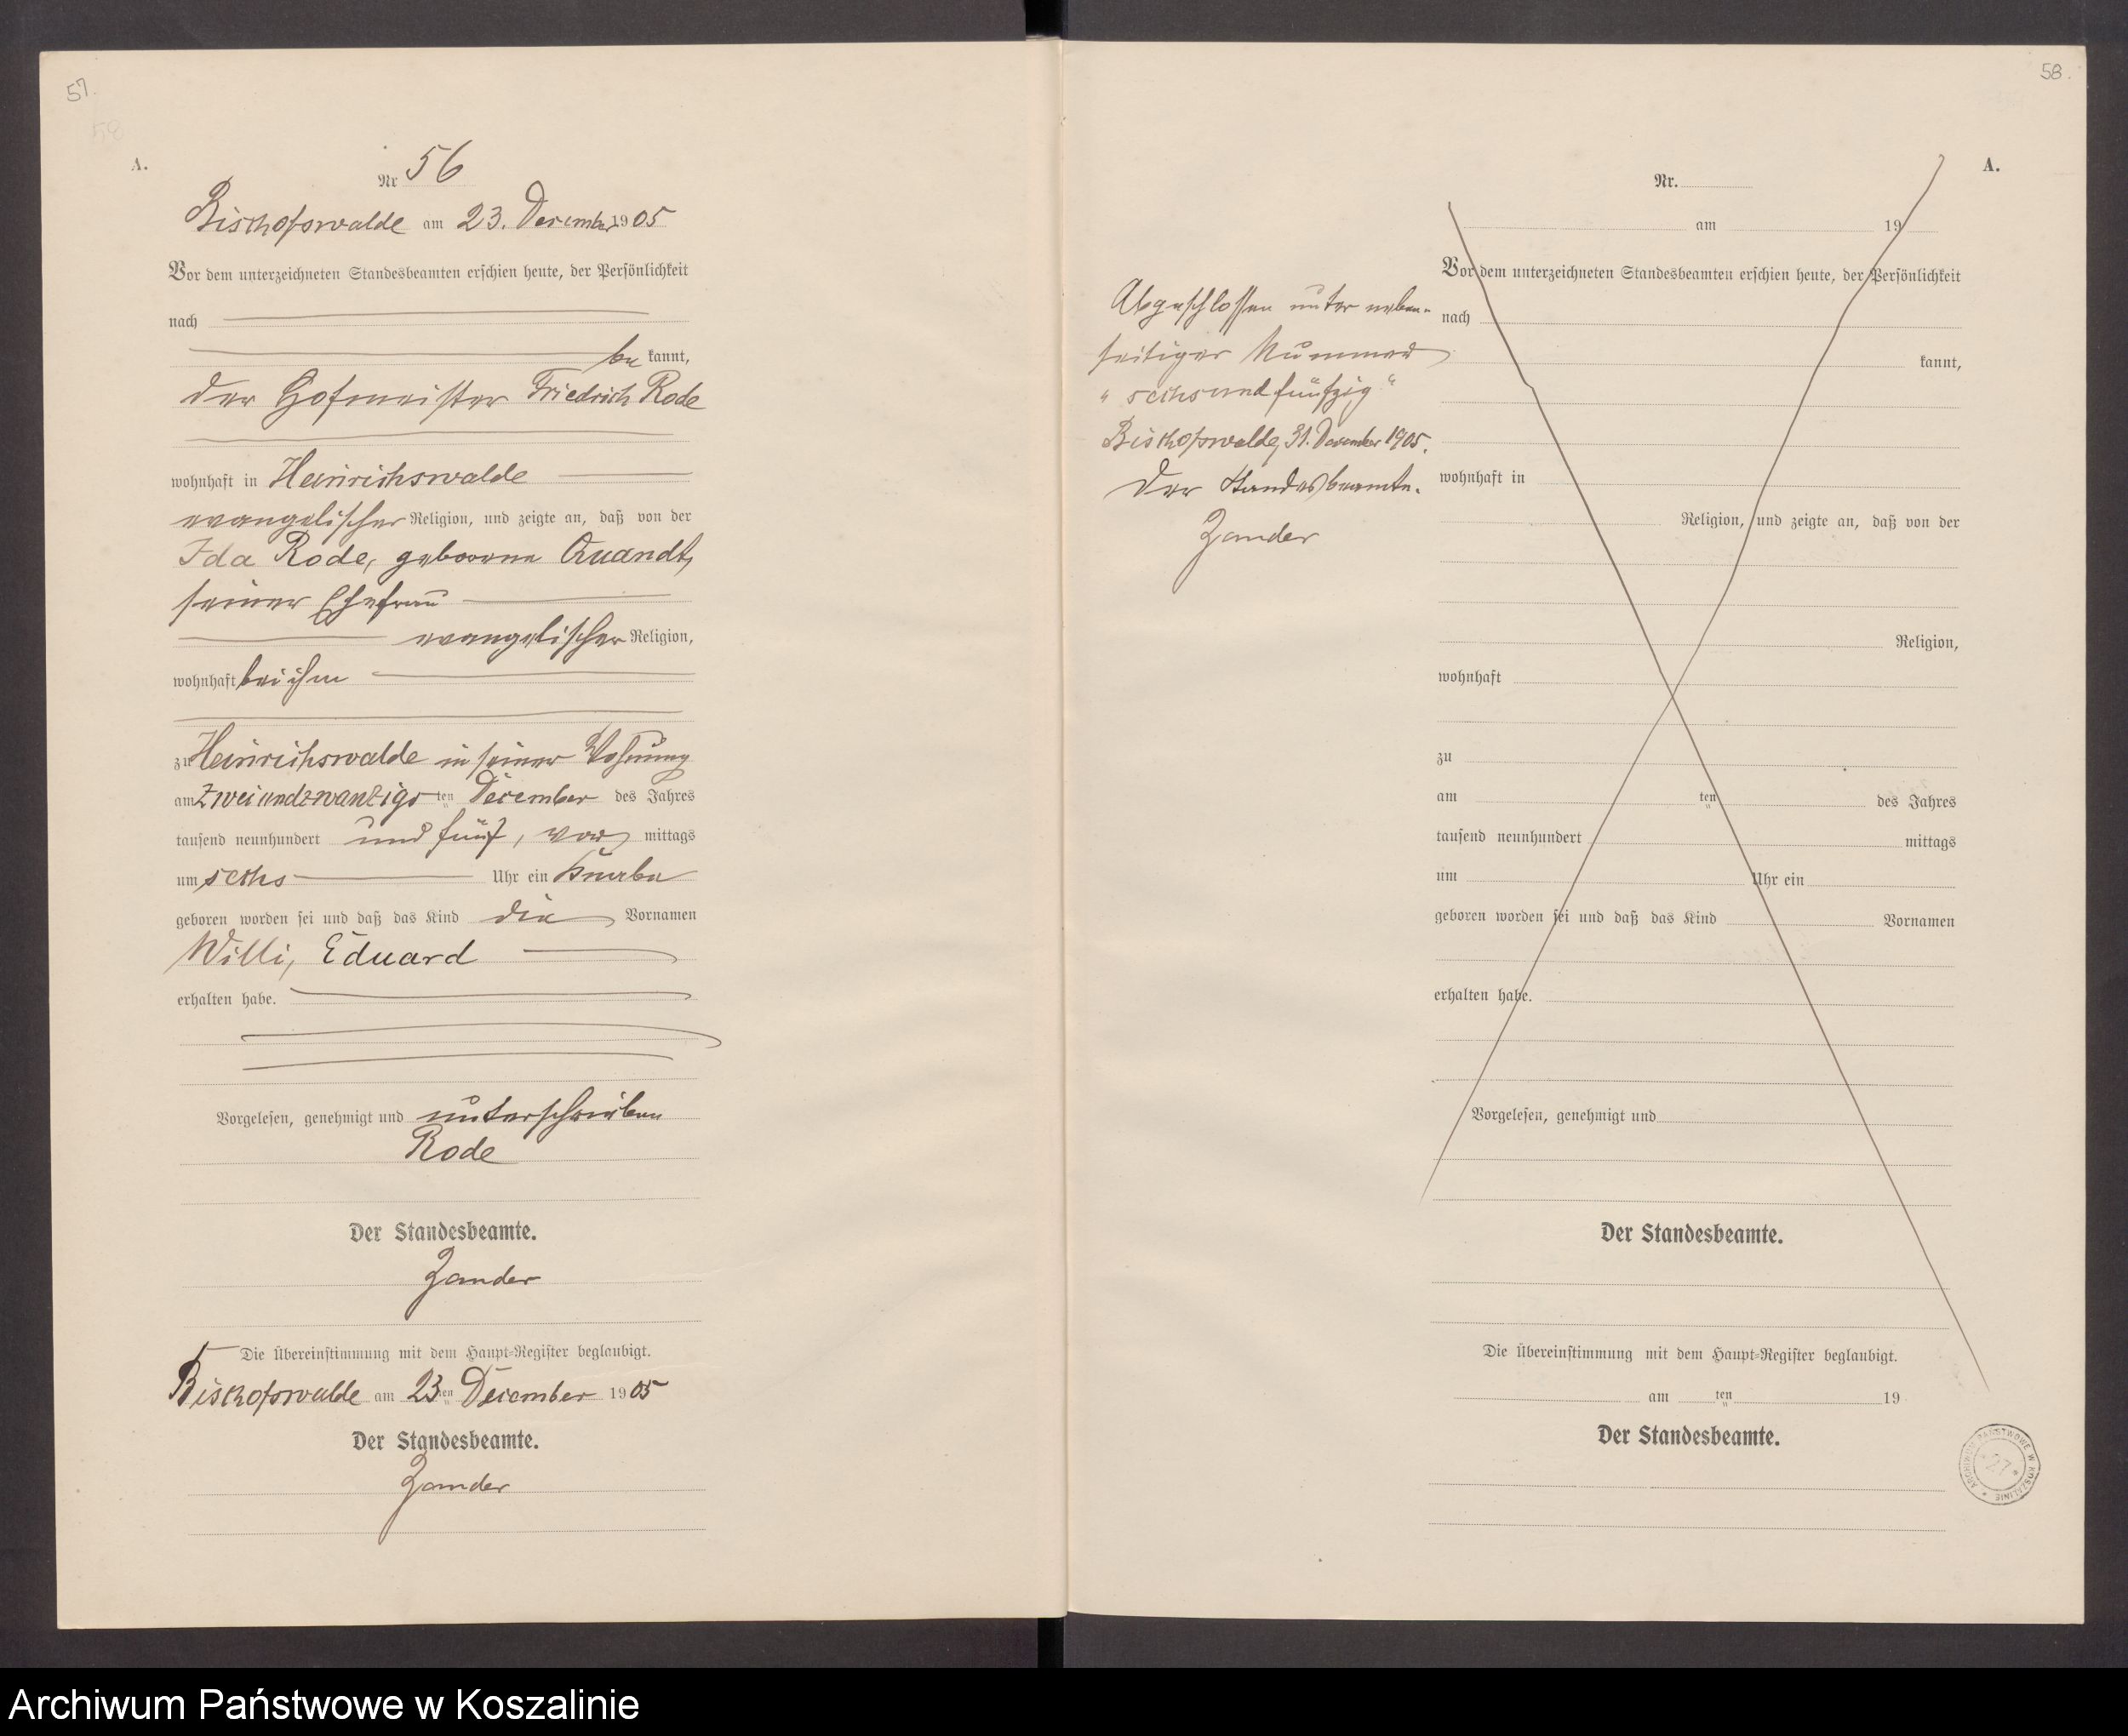 57.
58
A.
Nr 56
Bischofswalde am 23. December 1905
Vor dem unterzeichneten Standesbeamten erschien heute, der Persönlichkeit
nach
be kannt,
der Hofmeister Friedrich Rode
wohnhaft in Heinrichswalde
evangelischer Religion, und zeigte an, daß von der
Ida Rode, geborene Quandt,
seiner Ehefrau
evangelischer Religion,
wohnhaft bei ihm
zu Heinrichswalde in seiner Wohnung
am zweiundzwanzigs ten December des Jahres
tausend neunhundert und fünf, vor mittags
um sechs Uhr ein Knabe
geboren worden sei und daß das Kind die Vornamen
Willi, Eduard
erhalten habe.
Vorgelesen, genehmigt und unterschrieben
Rode
Der Standesbeamte.
Zander
Die Übereinstimmung mit dem Haupt-Register beglaubigt.
Bischofswalde am 23ten December 1905
Der Standesbeamte.
Zander
58.
A.
Nr.
am 19
Vor dem unterzeichneten Standesbeamten erschien heute, der Persönlichkeit
nach
kannt,
wohnhaft in
Religion, und zeigte an, daß von der
Religion,
wohnhaft
zu
am ten des Jahres
tausend neunhundert mittags
um Uhr ein
geboren worden sei und daß das Kind Vornamen
erhalten habe.
Vorgelesen, genehmigt und
Der Standesbeamte.
Die Übereinstimmung mit dem Haupt-Register beglaubigt.
am ten 19
Der Standesbeamte.
Abgeschlossen unter neben-
seitiger Nummer
„sechsundfünfzig“
Bischofswalde, 31. December 1905.
Der Standesbeamte.
Zander
ARCHIWUM PAŃSTWOWE W KOSZALINIE
* 27 *
Archiwum Państwowe w Koszalinie